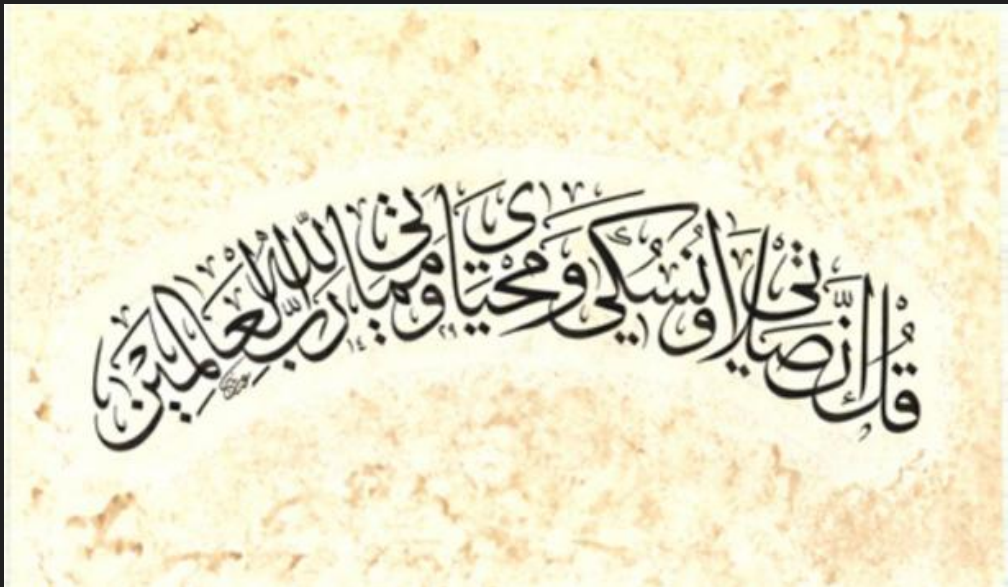 قُلْ إِنَّ صَلَاتِي وَنُسُكِي وَمَحْيَايَ وَمَمَاتِي لِلَّهِ رَبِّ الْعَالَمِينَ
١٤٢٩